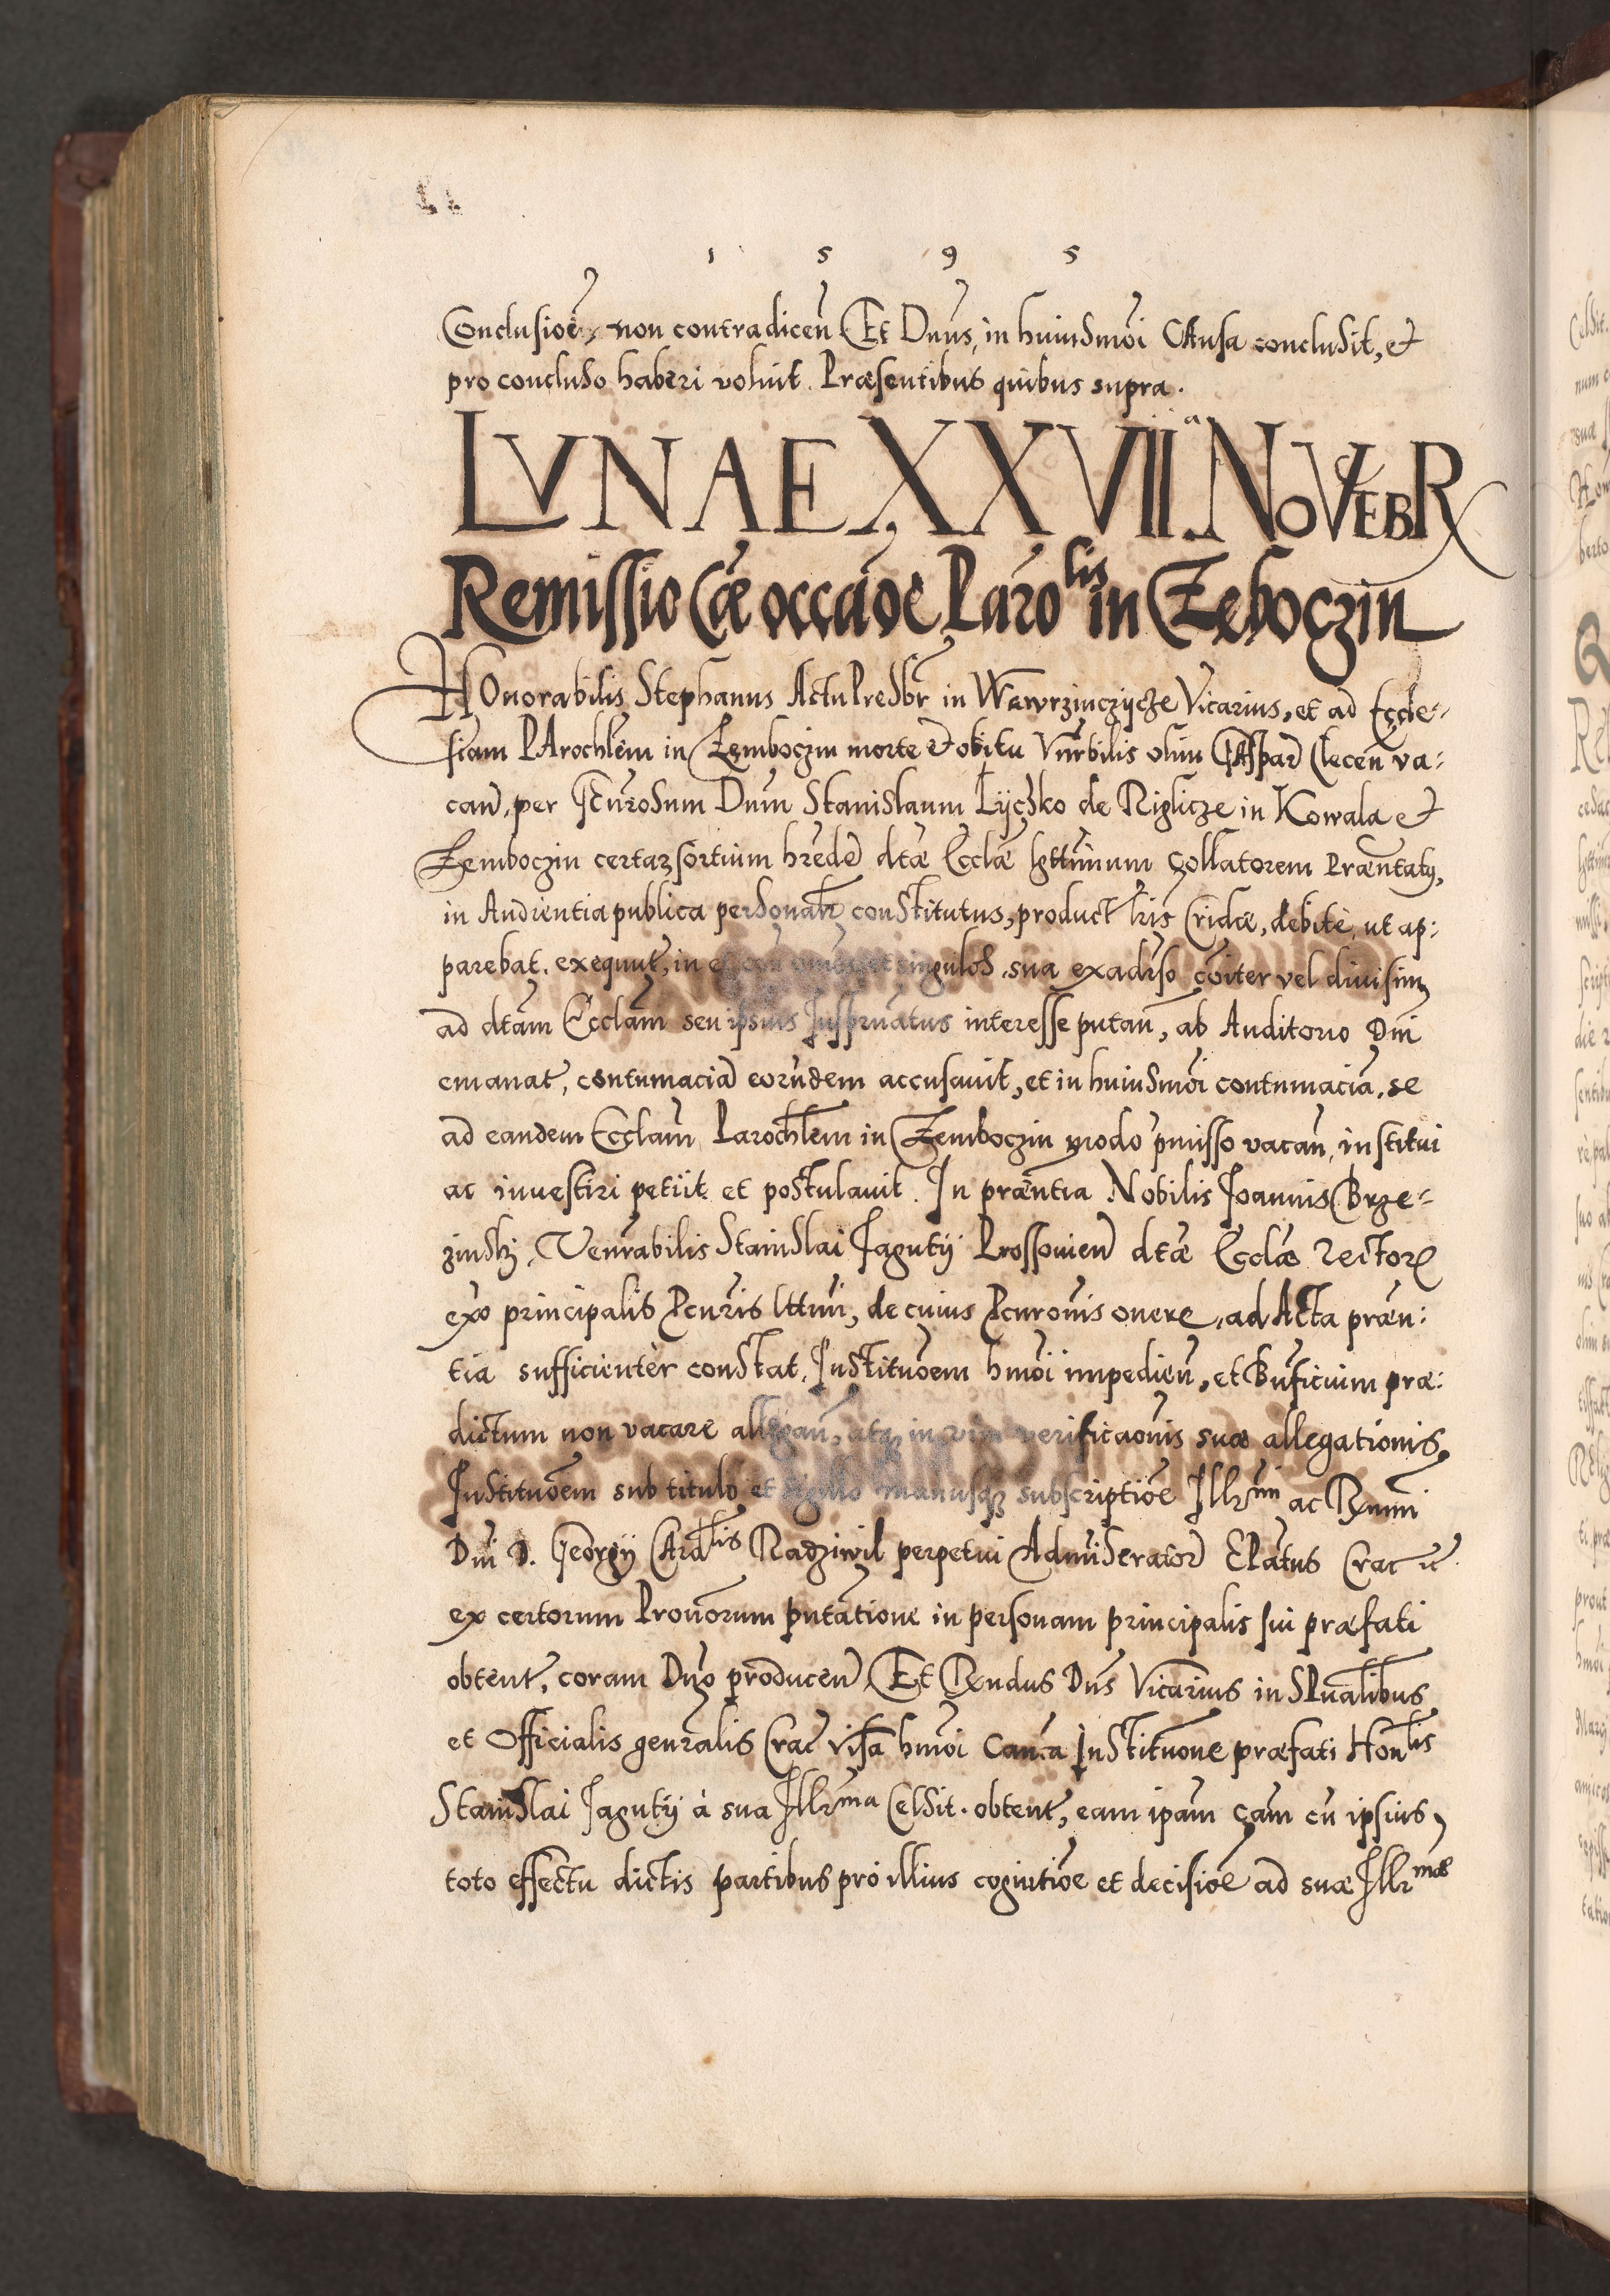 1 5 9 5
Conclusioẽ non contradiceñ Et Dnus, in huiusmoi CAusa conclusit, et
pro concluso haberi voluit. Præsentibus quibus supra.
LVNAE XXVIIa NoVEBR
Remissio Cæ occãoe Parolis in Zęboczin
HOnorabilis Stephanus Actu Presbr in Wawrzinczycze Vicarius, et ad Eccle-
siam PArochlem in Zemboczin morte et obitu Vnrbilis olim CAspar Clecen va:
can, per Genrosum Dnm Stanislaum Lyczko de Riglicze in Kowala et
Zemboczin certarsortium hrede dtæ Ecclæ lgttimum Collatorem Præntaty,
in Audientia publica personalr constitutus, product lris Cridæ, debite, ut ap:
parebat, exequut, in singulos, sua exadrso coiter vel divisim
ad dtam Ecclam seu ipsius Juspruatus interesse putan, ab Auditorio Dni
emanat, contumacia eorundem accusavit, et in huiusmoi contumacia, se
ad eandem Ecclam Parochlem in Zemboczin modo pmisso vacan, institui
ac investiri petiit et postulavit. In præntia Nobilis Joannis Brze-
zinski, Venrabilis Stanislai Jagutij Prossovien dtæ Ecclæ rector
exo principalis Pcuris lttimi, de cuius Pcurouis onere, ad Acta præn:
tia sufficienter constat, Instituoem hmoi impedien, et Bnficium præ:
dictum non vacare allegan, atq in vim verificaouis suæ allegationis,
Instituoem sub titulo et sigillo manusq subscriptioe Illrmi ac Rmi
Dni D. Georgij CArdlis Radziwil perpetui Admistrator EPatus Crac rc
ex certorum Prouorum putatione in personam principalis sui præfati
obtent, coram Dno producen Et Rndus Dns Vicarius in SPualibus
et Officialis genralis Crac visa hmoi Caura Instituone præfati Honlis
Stanislai Jagutij à sua Illrma Celsit. obtent, eam ipam cam cu ipsius
toto effectu dictis partibus pro illius cognitioe et decisioe ad suæ Illrmæ